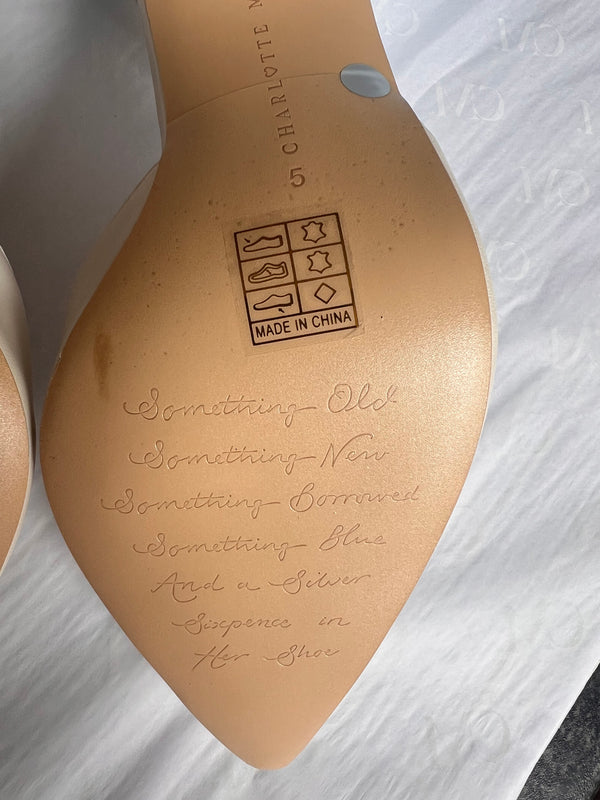 CHARLOTTE M
5
MADE IN CHINA
Something Old
Something New
Something Borrowed
Something Blue
And a Silver
Sixpence in
Her Shoe
CM
CM
CM
CM